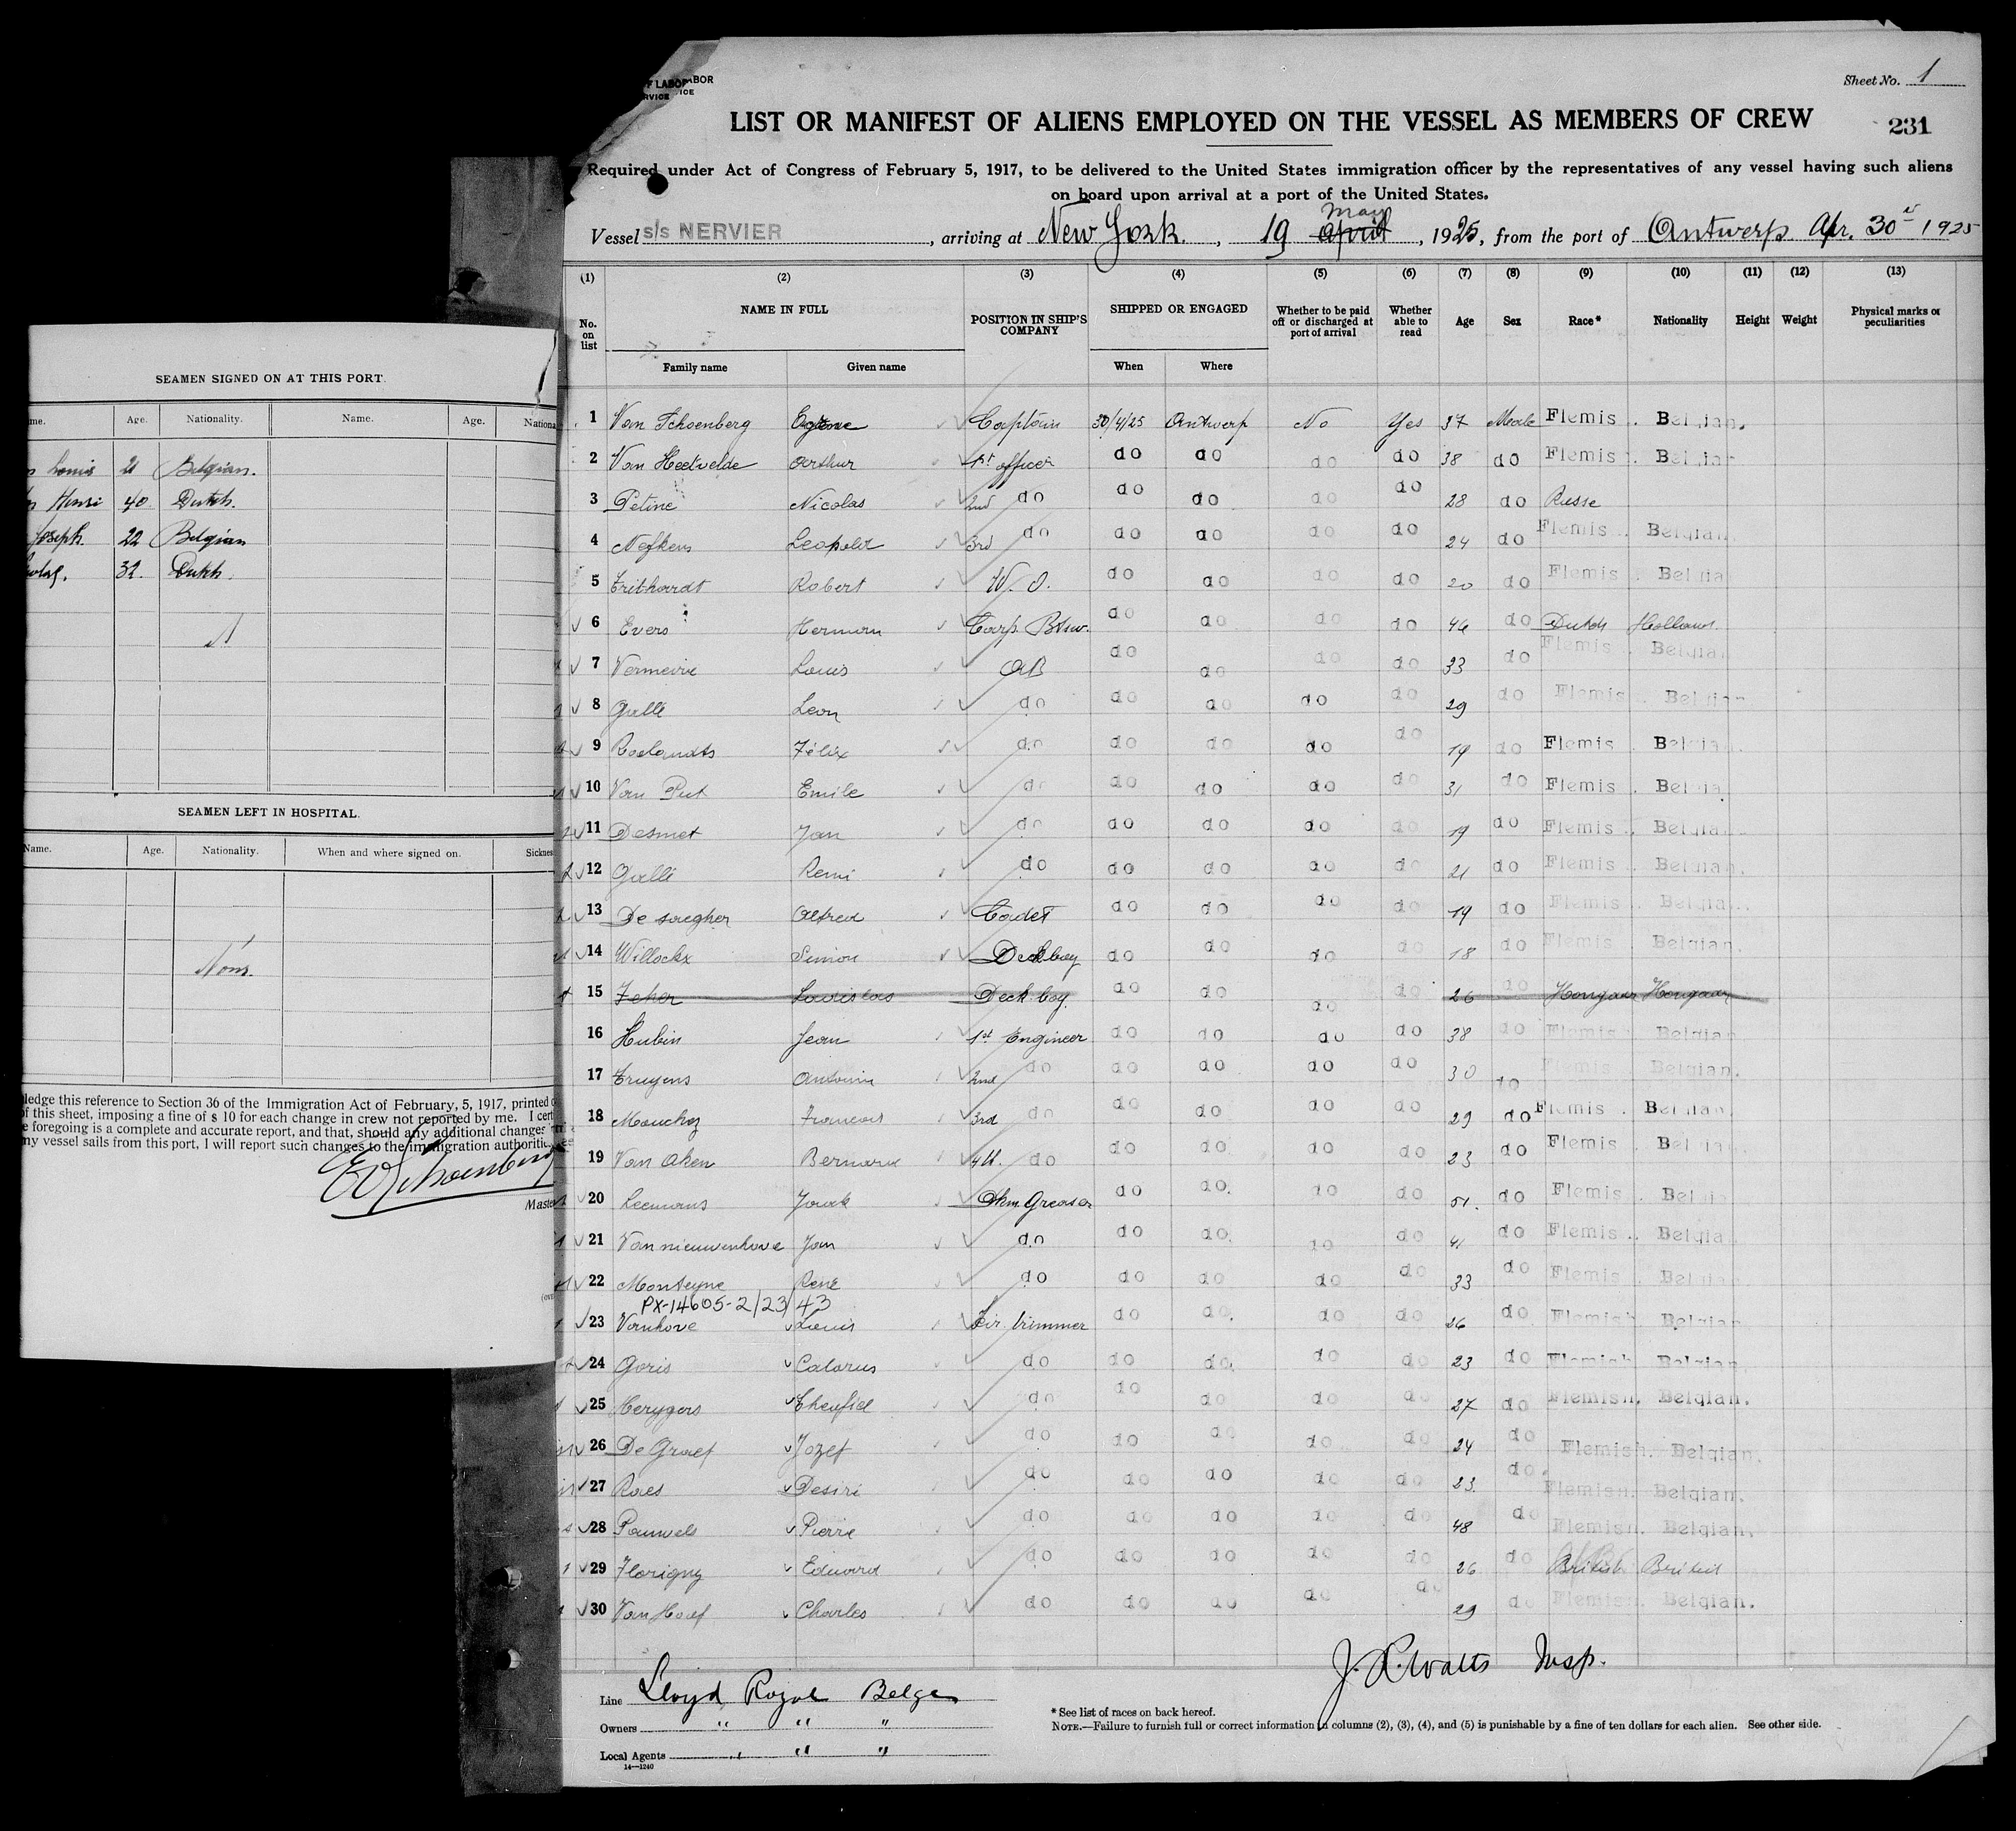 SEAMEN SIGNED ON AT THIS PORT.
me. Age. Nationality. Name. Age. Nationa
Louis 21 Belgian.
Henri 40 Dutch.
Joseph. 22 Belgian
32. Dutch.
SEAMEN LEFT IN HOSPITAL.
Name. Age. Nationality. When and where signed on. Sicknes
None.
ledge this reference to Section 36 of the Immigration Act of February, 5, 1917, printed o
of this sheet, imposing a fine of $ 10 for each change in crew not reported by me. I cert
e foregoing is a complete and accurate report, and that, should any additional changes
ny vessel sails from this port, I will report such changes to the immigration authoriti
EVSchoenberg
Master
LABOR
Sheet No. 1
LIST OR MANIFEST OF ALIENS EMPLOYED ON THE VESSEL AS MEMBERS OF CREW
231
Required under Act of Congress of February 5, 1917, to be delivered to the United States immigration officer by the representatives of any vessel having such aliens
on board upon arrival at a port of the United States.
May
Vessel s/s NERVIER, arriving at New York., 19 april, 1925, from the port of Antwerp Apr. 30 1925
(1) (2) (3) (4) (5) (6) (7) (8) (9) (10) (11) (12) (13)
No. on list NAME IN FULL POSITION IN SHIP'S COMPANY SHIPPED OR ENGAGED Whether to be paid off or discharged at port of arrival Whether able to read Age Sex Race* Nationality Height Weight Physical marks or peculiarities
Family name Given name When Where
1 Van Schoenberg Captain 30/4/25 Antwerp No Yes 37 Male Flemis. Belgian.
2 Van Heetvelde Arthur 1st officer do do do do 38 do Flemis. Belgian
3 Petine Nicolas 2nd do do do do do 28 do Russe
4 Nefkens Leopold 3rd do do do do do 24 do Flemis. Belgian.
5 Robert W. O. do do do do 20 do Flemis. Belgia
6 Evers Herman Carp. Btsw. do do do do 46 do Dutch Holland.
7 Louis AB do do do do 33 do Flemis Belgian
8 Gallé Leon do do do do do 29 do Flemis. Belgian
9 Roelandts Félix do do do do do 19 do Flemis. Belgia
10 Van Put Emile do do do do do 31 do Flemis. Belgia
11 Desmet Jan do do do do do 19 do Flemis. Belgia
12 Gallé Remi do do do do do 21 do Flemis. Belgian.
13 De saegher Alfred Cadet do do do do 19 do Flemis. Belgia
14 Willockx Simon Deckboy do do do do 18 do Flemis Belgian.
15 Feher Ladislas Deck boy do do do do 26 do Hongaar Hongaar
16 Hubin Jean 1st Engineer do do do do 38 do Flemis. Belgian
17 Truyens Antoine 2nd do do do do do 30 do Flemis. Belgian.
18 Francois 3rd do do do do do 29 do Flemis. Belgian.
19 Van Aken Bernard 4th. do do do do do 23 do Flemis. Belgian
20 Leemans Greaser do do do do 51. do Flemis. Belgia
21 Vannieuwenhove Jan do do do do do 41 do Flemis. Belgia
22 Monteyne René do do do do do 33 do Flemis. Belgian
PX-14605-2/23/43
23 Vanhove Louis Fir. trimmer do do do do 26 do Flemish Belgian
24 Goris do do do do do 23 do Flemish Belgian.
25 Herygers do do do do do 27 do Flemish. Belgian.
26 De Graef Jozef do do do do do 24 do Flemish. Belgian.
27 Raes Desiré do do do do do 23. do. Flemish. Belgian.
28 Pauwels Pierre do do do do do 48 do Flemish. Belgian.
29 Florigny Edward do do do do do 26 do British British
30 Van Hoof Charles do do do do do 29 do Flemish. Belgian.
J. R. Watts Insp.
Line Lloyd Royal Belge
Owners " " "
Local Agents " " "
14—1240
* See list of races on back hereof.
NOTE.—Failure to furnish full or correct information in columns (2), (3), (4), and (5) is punishable by a fine of ten dollars for each alien. See other side.